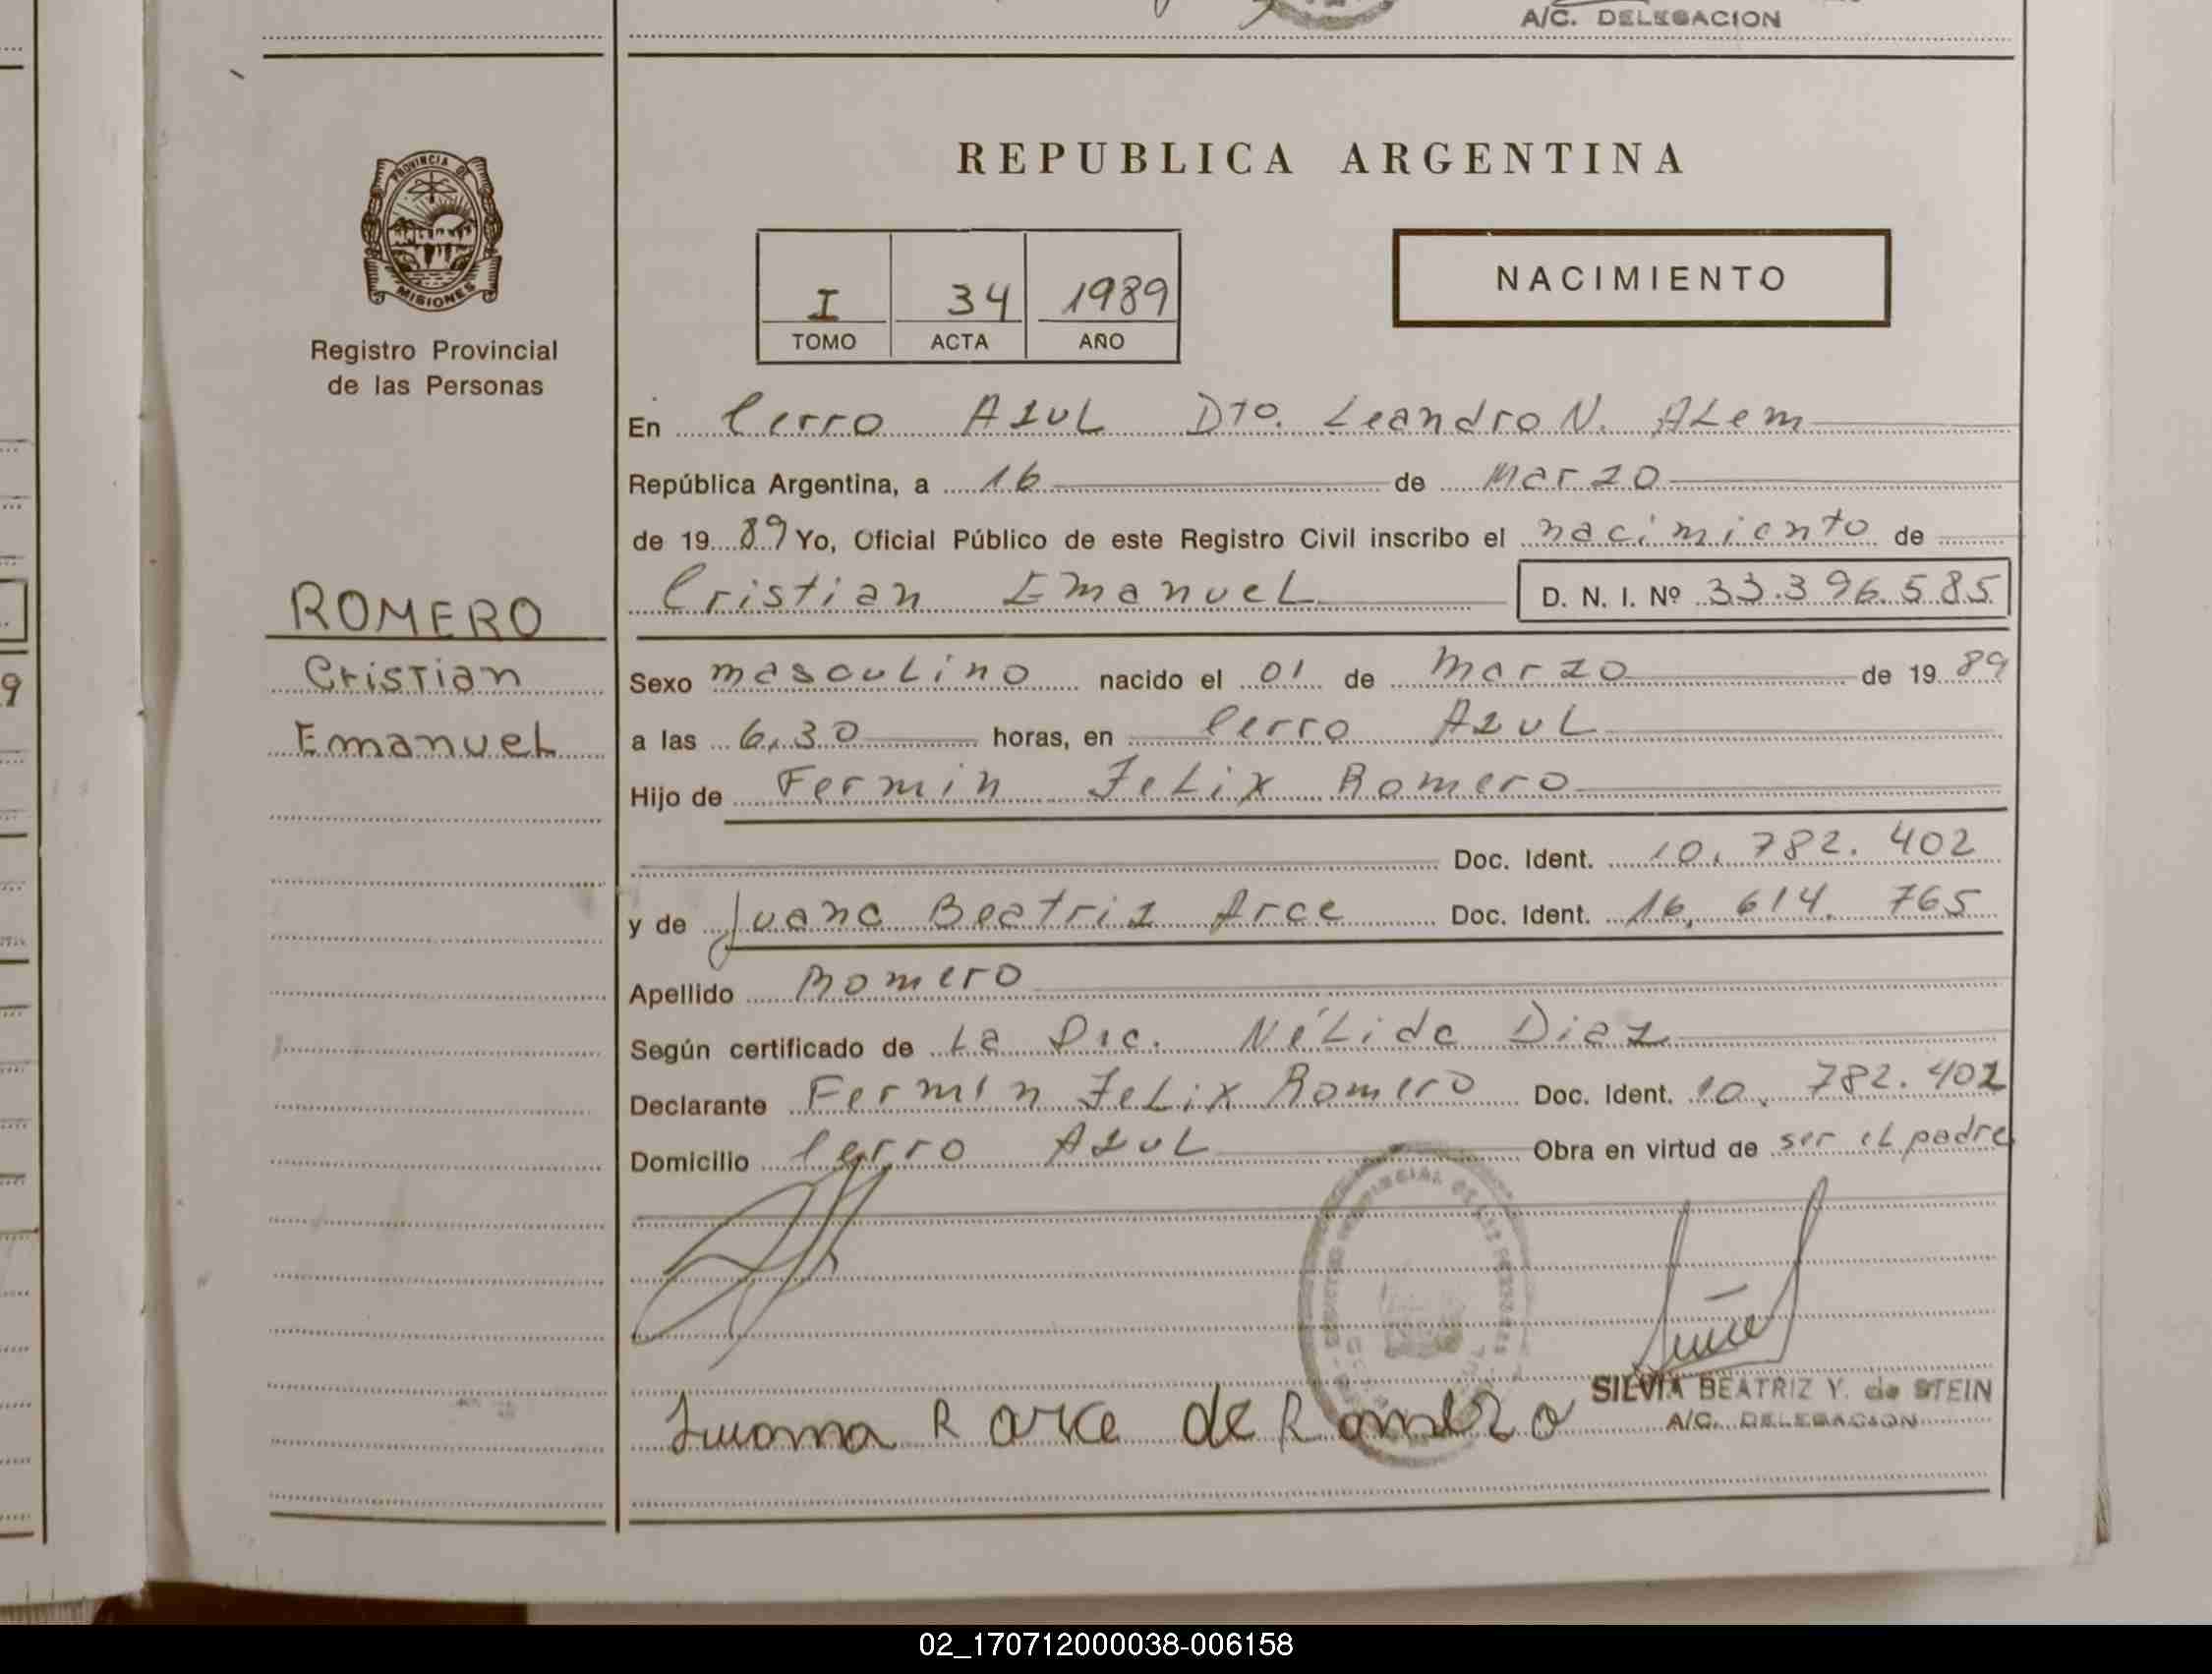 A/C. DELEGACION
PROVINCIA DE
MISIONES
Registro Provincial
de las Personas
ROMERO
Cristian
Emanuel
9
REPUBLICA ARGENTINA
I 34 1989
TOMO ACTA AÑO
NACIMIENTO
En Cerro Azul Dto. Leandro N. Alem
República Argentina, a 16 de Marzo
de 1989 Yo, Oficial Público de este Registro Civil inscribo el nacimiento de
Cristian Emanuel D. N. I. Nº 33.396.585
Sexo masculino nacido el 01 de Marzo de 1989
a las 6,30 horas, en Cerro Azul
Hijo de Fermin Felix Romero
Doc. Ident. 10. 782. 402
y de Juana Beatriz Arce Doc. Ident. 16. 614. 765
Apellido Romero
Según certificado de La Nélida Diaz
Declarante Fermin Felix Romero Doc. Ident. 10. 782.402
Domicilio Cerro Azul Obra en virtud de ser el padre
SILVIA BEATRIZ Y. de STEIN
A/C. DELEGACION
R arce de Romero
02_170712000038-006158